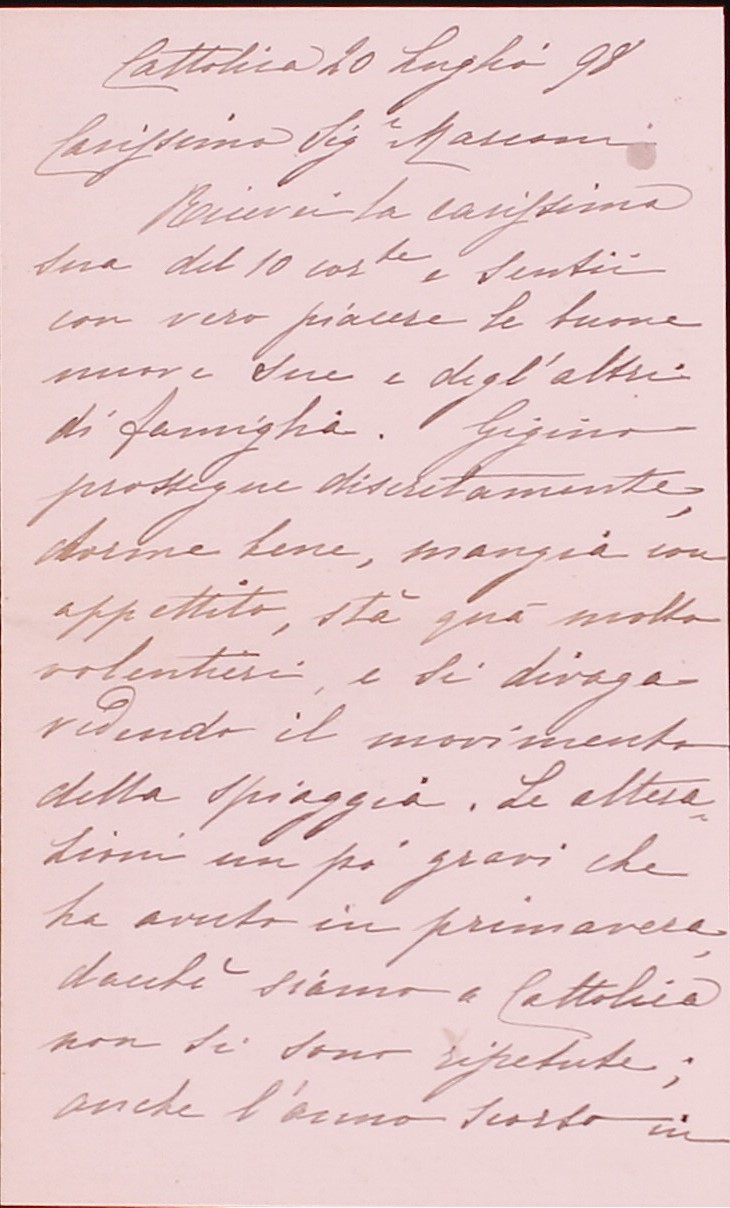 Cattolica 20 Luglio 98
Carissimo Sigr Marconi
Ricevei la carissima
sua del 10 corte e sentii
con vero piacere le buone
nuove sue e degl'altri
di famiglia. Gigino
prosegue discretamente,
dorme bene, mangia con
appettito, stà quà molto
volentieri, e si divaga
vedendo il movimento
della spiaggia. Le altera=
zioni un pò gravi che
ha avuto in primavera,
dacchè siamo a Cattolica
non si sono ripetute;
anche l'anno scorso in